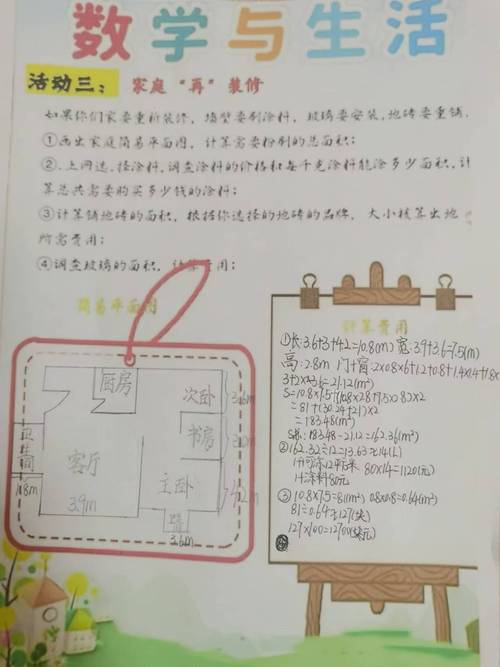 数学与生活
活动三：家庭“再”装修
如果你们家要重新装修，墙壁要刷涂料，玻璃要安装，地砖要重铺。
①画出家庭简易平面图，计算需要粉刷的总面积；
②.上网选择涂料，调查涂料的价格和每千克涂料能涂多少面积，计
算总共需要购买多少钱的涂料；
③计算铺地砖的面积，根据你选择的地砖的品牌、大小核算出地
所需费用；
④调查玻璃的面积，计算费用；
简易平面图
厨房
次卧
3.6m
书房
3m
卫生间
1.8m
客厅
3.9m
主卧
4.2m
3.6m
计算费用
①长:3.6+3+4.2=10.8(m) 宽:3.9+3.6=7.5(m)
高:2.8m 门+窗:2×0.8×6+1.2×0.8+1.4×1.4+1.8×
=21.12(m²)
S=10.8×7.5+(10.8×2.8+7.5×2.8)×2
=81+(30.24+21)×2
=183.48(m²)
S总:183.48-21.12=162.36(m²)
②162.32÷12=13.63≈14(L)
1升可涂12平方米 80×14=1120(元)
1升涂料80元
③10.8×7.5=81(m²) 0.8×0.8=0.64(m²)
81÷0.64≈127(块)
127×100=12700(元)